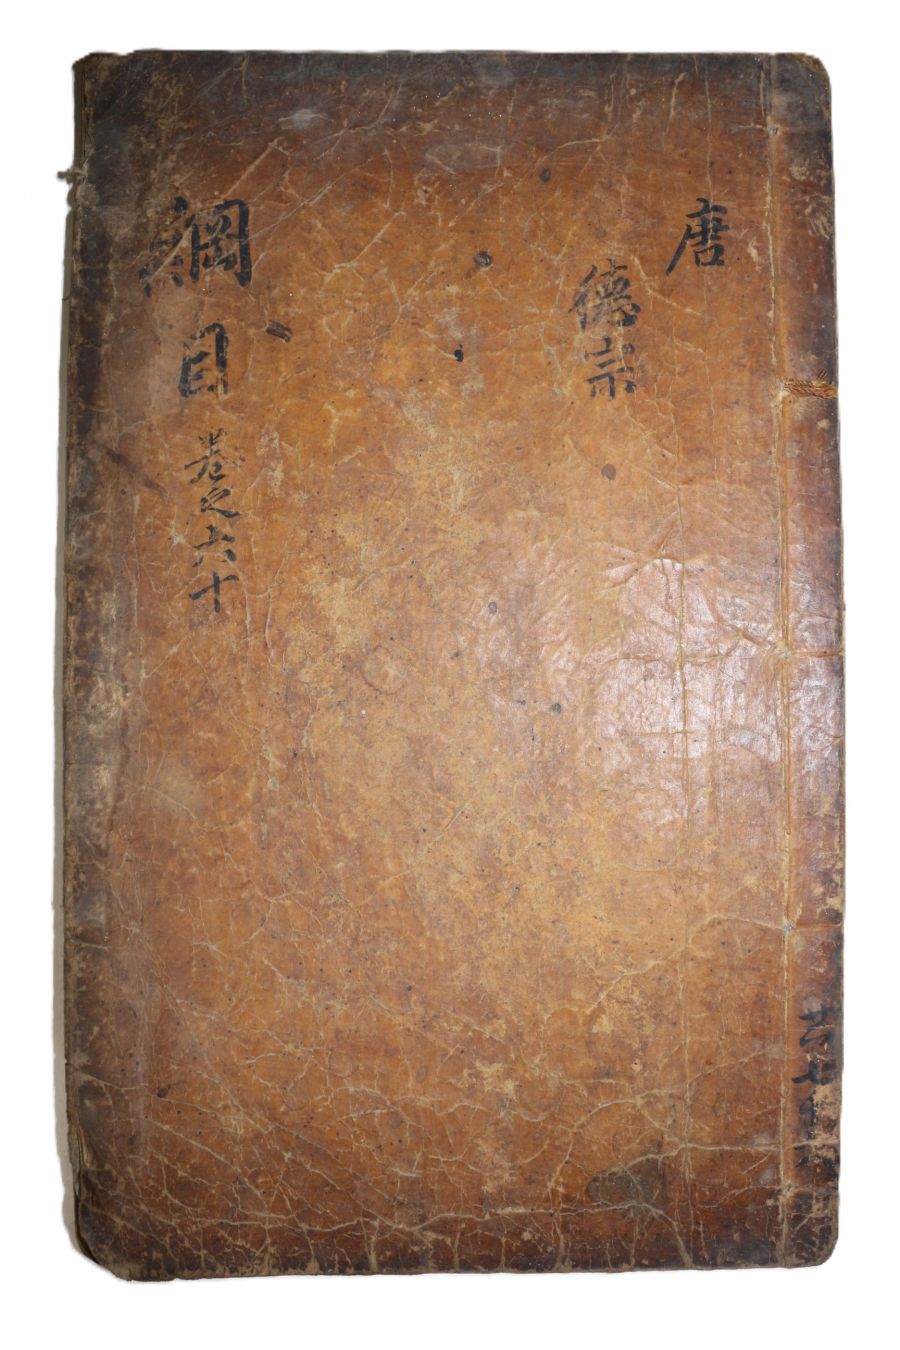 唐
德宗
綱目 卷之六十